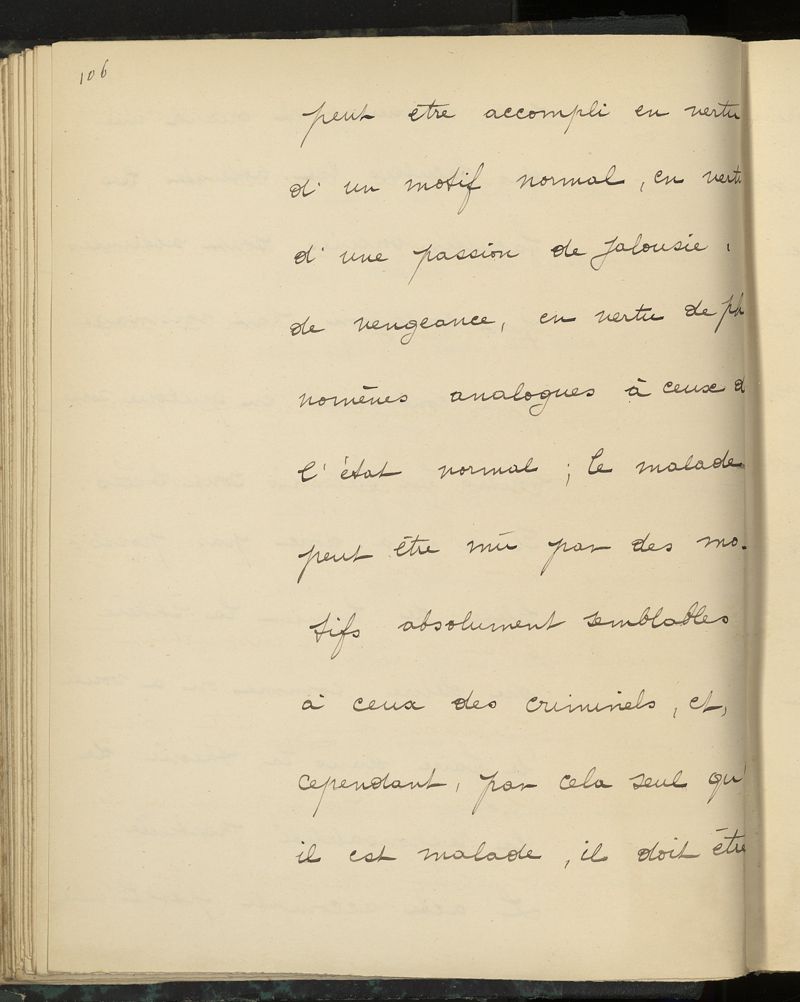 106
peut être accompli en vertu
d'un motif normal, en vertu
d'une passion de jalousie,
de vengeance, en vertu de phé
nomènes analogues à ceux d
l'état normal ; le malade
peut être mû par des mo-
tifs absolument semblables
à ceux des criminels, et,
cependant, par cela seul qu'
il est malade, il doit être